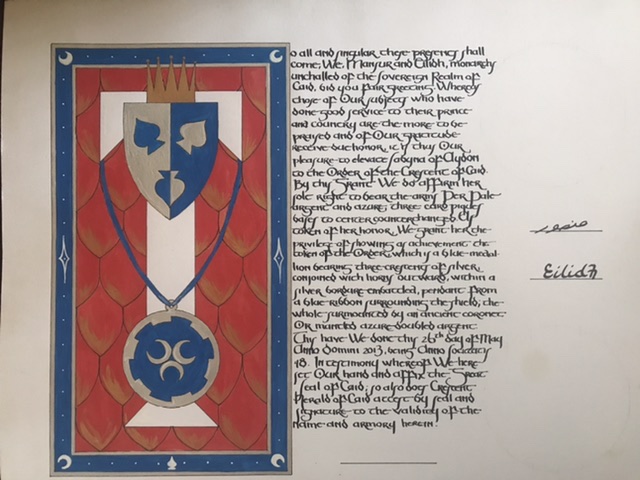 o all and singular these presents shall
come, We, Mansur and Eilidh, monarchs
unchalled of the sovereign Realm of
Caid, bid you fair greeting. Whereas
those of Our subjects who have
done good service to their prince
and country are the more to be
praysed and of Our gratitude
receive due honor, it is thus Our
pleasure to elevate Sabyna of Clydon
to the Order of the Crescent of Caid.
By this Grant We do affirm her
sole right to bear the arms Per Pale
argent and azure, three card piques
bases to center counterchanged. As
token of her honor, We grant her the
privilege of showing as achievement the
token of the Order, which is a blue medal-
lion bearing three crescents of silver
conjoined with horns outward, within a
silver bordure embattled, pendant from
a blue ribbon surrounding the shield, the
whole surmounted by an ancient coronet
Or mantled azure doubled argent
This have We done this 26th day of May
Anno Domini 2013, being Anno Societatis
48. In testimony whereof We here
set Our hand and affix the Great
Seal of Caid, so also does Crescent
Herald of Caid accept by seal and
signature to the validity of the
name and armory herein.
Eilidh